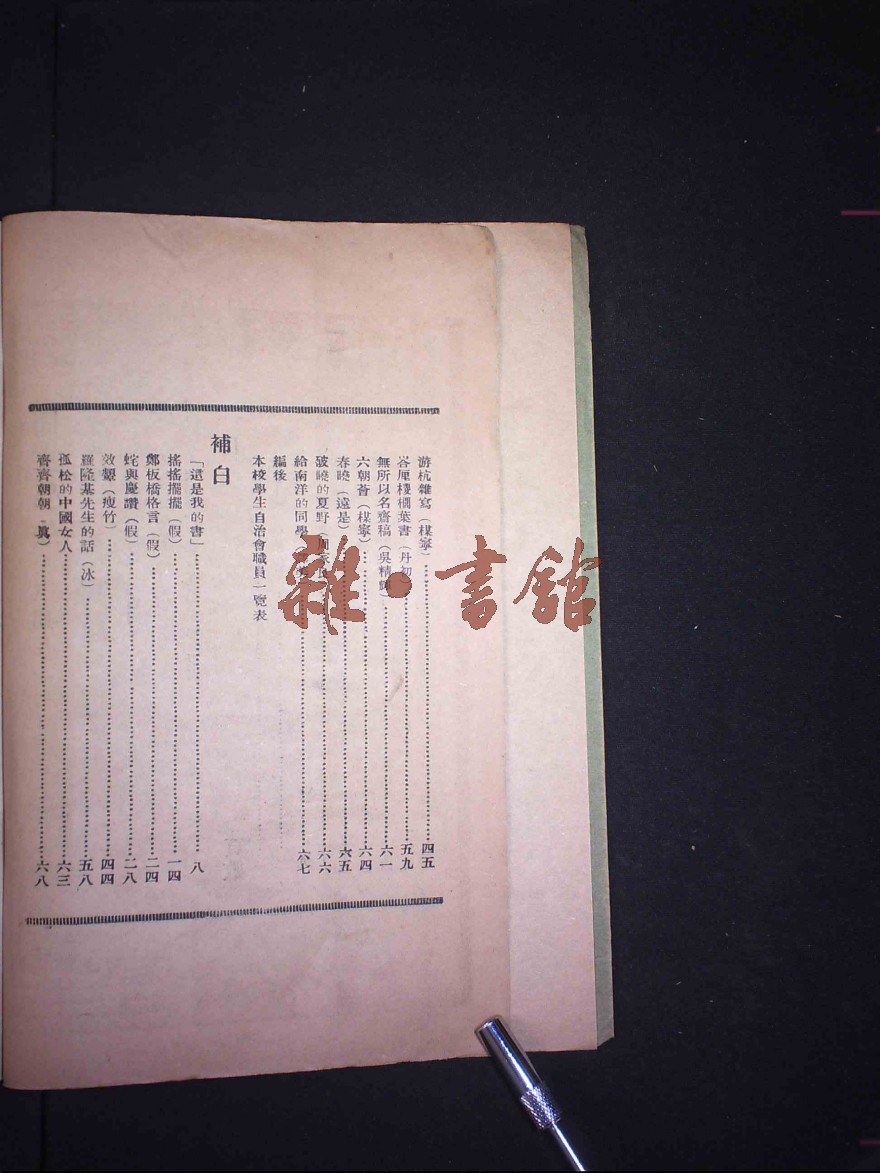 游杭雜寫(楳寧)……四五
峇厘椶櫚葉書(丹初……五九
無所以名齋稿(吳精……六一
六朝薈(楳寧)……六四
春曉(遠是)……六五
破曉的夏野……六六
給南洋的同學……六七
編後
本校學生自治會職員一覽表
補白
「這是我的書」……八
搖搖擺擺(假)……一四
鄭板橋格言(假)……二四
蛇與慶讚(假)……二八
效顰(瘦竹)……四四
羅隆基先生的話(冰)……五八
孤松的中國女人……六三
齊齊朝朝(眞)……六八
雜·書館